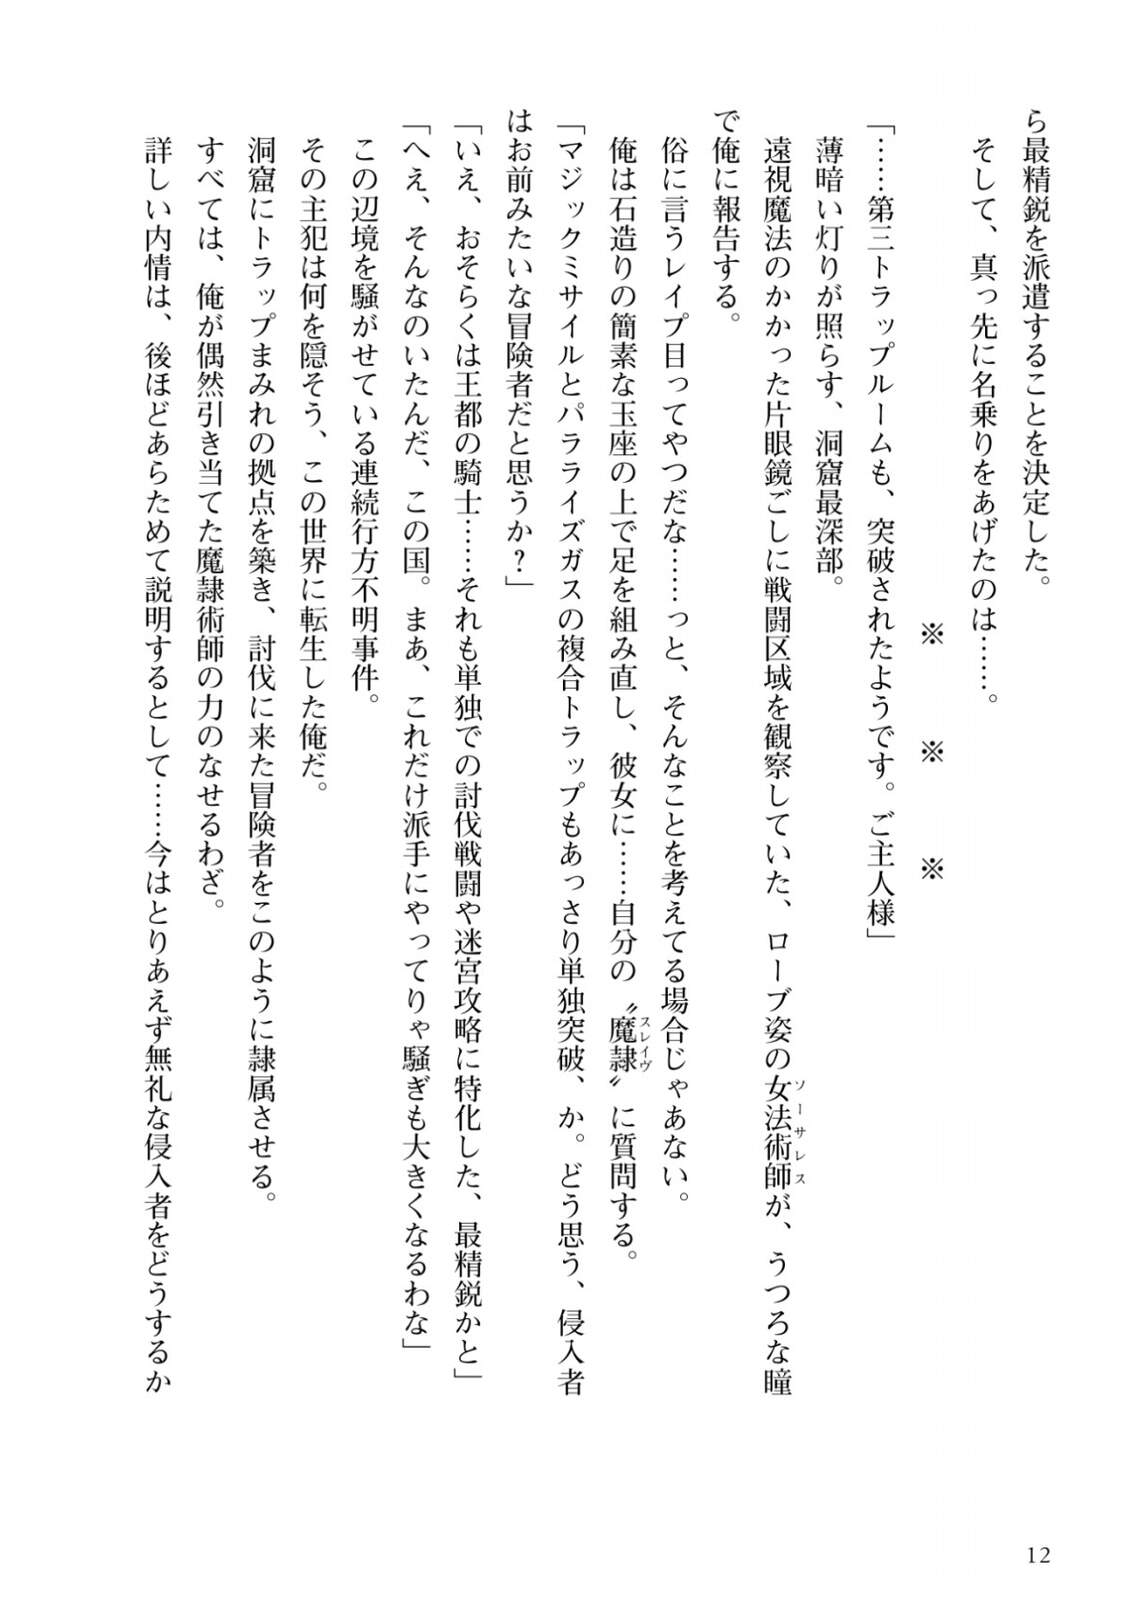 ら最精鋭を派遣することを決定した。
そして、真っ先に名乗りをあげたのは……。
※　※　※
「……第三トラップルームも、突破されたようです。ご主人様」
薄暗い灯りが照らす、洞窟最深部。
遠視魔法のかかった片眼鏡ごしに戦闘区域を観察していた、ローブ姿の女法術師が、うつろな瞳
ソーサレス
で俺に報告する。
俗に言うレイプ目ってやつだな……っと、そんなことを考えてる場合じゃあない。
俺は石造りの簡素な玉座の上で足を組み直し、彼女に……自分の〝魔隷〟に質問する。
スレイヴ
「マジックミサイルとパラライズガスの複合トラップもあっさり単独突破、か。どう思う、侵入者
はお前みたいな冒険者だと思うか？」
「いえ、おそらくは王都の騎士……それも単独での討伐戦闘や迷宮攻略に特化した、最精鋭かと」
「へえ、そんなのいたんだ、この国。まあ、これだけ派手にやってりゃ騒ぎも大きくなるわな」
この辺境を騒がせている連続行方不明事件。
その主犯は何を隠そう、この世界に転生した俺だ。
洞窟にトラップまみれの拠点を築き、討伐に来た冒険者をこのように隷属させる。
すべては、俺が偶然引き当てた魔隷術師の力のなせるわざ。
詳しい内情は、後ほどあらためて説明するとして……今はとりあえず無礼な侵入者をどうするか
12